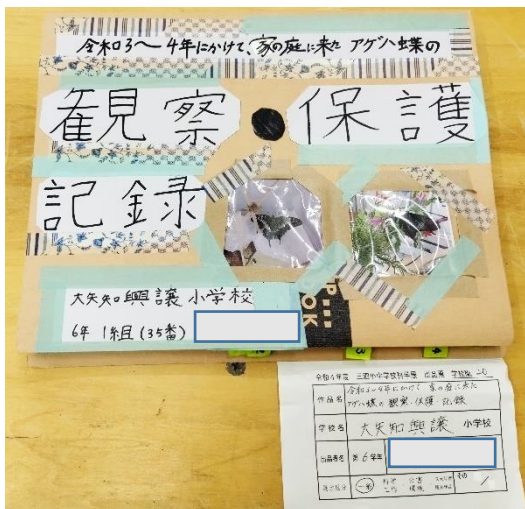 令和3〜4年にかけて、家の庭に来た アゲハ蝶の
観察・保護
記録
大矢知興譲小学校
6年 1組(35番)
OK
3
4
令和4年度 三泗小中学校科学展 出品票
作品名
令和3〜4年にかけて 家の庭に来た
アゲハ蝶の 観察・保護・記録
学校名 大矢知興譲 小学校
出品者名 第6学年